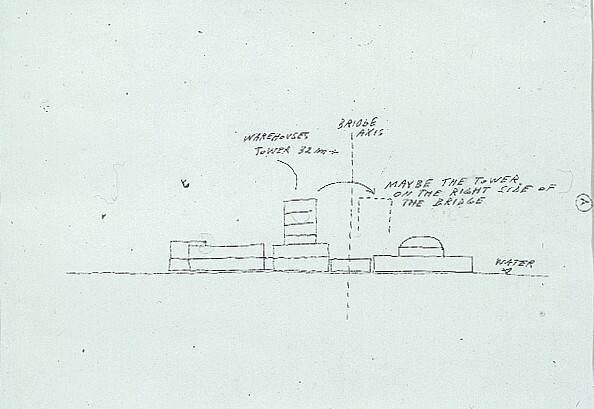 BRIDGE
AXIS
WAREHOUSES
TOWER 32 m +
MAYBE THE TOWER
ON THE RIGHT SIDE OF
THE BRIDGE
WATER